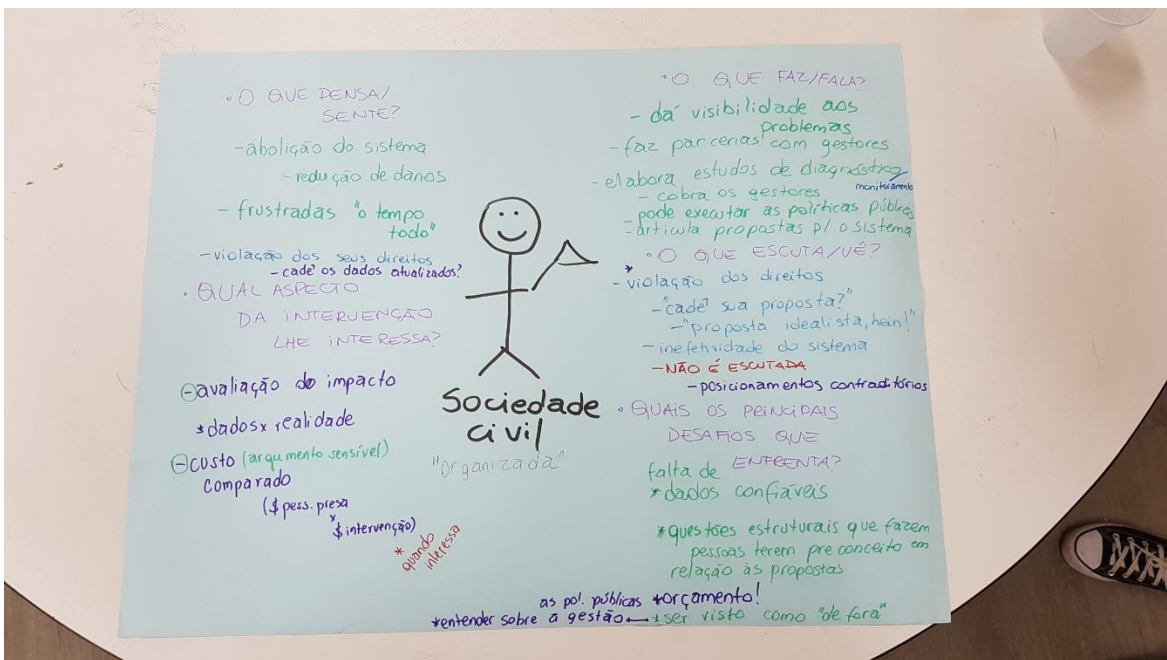 • O QUE PENSA/
SENTE?
- abolição do sistema
- redução de danos
- frustradas "o tempo
todo"
- violação dos seus direitos
- cadê os dados atualizados?
• QUAL ASPECTO
DA INTERVENÇÃO
LHE INTERESSA?
- avaliação do impacto
* dados x realidade
- custo (argumento sensível)
comparado
($ pess. presa
x
$ intervenção)
* quando
interessa
Sociedade
civil
"organizada"
• O QUE FAZ/FALA?
- dá visibilidade aos
problemas
- faz parcerias com gestores
- elabora estudos de diagnóstico/
monitoramento
- cobra os gestores
- pode executar as políticas públicas
- articula propostas p/ o sistema
• O QUE ESCUTA/VÊ?
* - violação dos direitos
- "cadê sua proposta?"
- "proposta idealista, hein!"
- inefetividade do sistema
- NÃO É ESCUTADA
- posicionamentos contraditórios
• QUAIS OS PRINCIPAIS
DESAFIOS QUE
ENFRENTA?
falta de
* dados confiáveis
* questões estruturais que fazem
pessoas terem preconceito em
relação às propostas
* orçamento!
* ser visto como "de fora"
as pol. públicas
* entender sobre a gestão